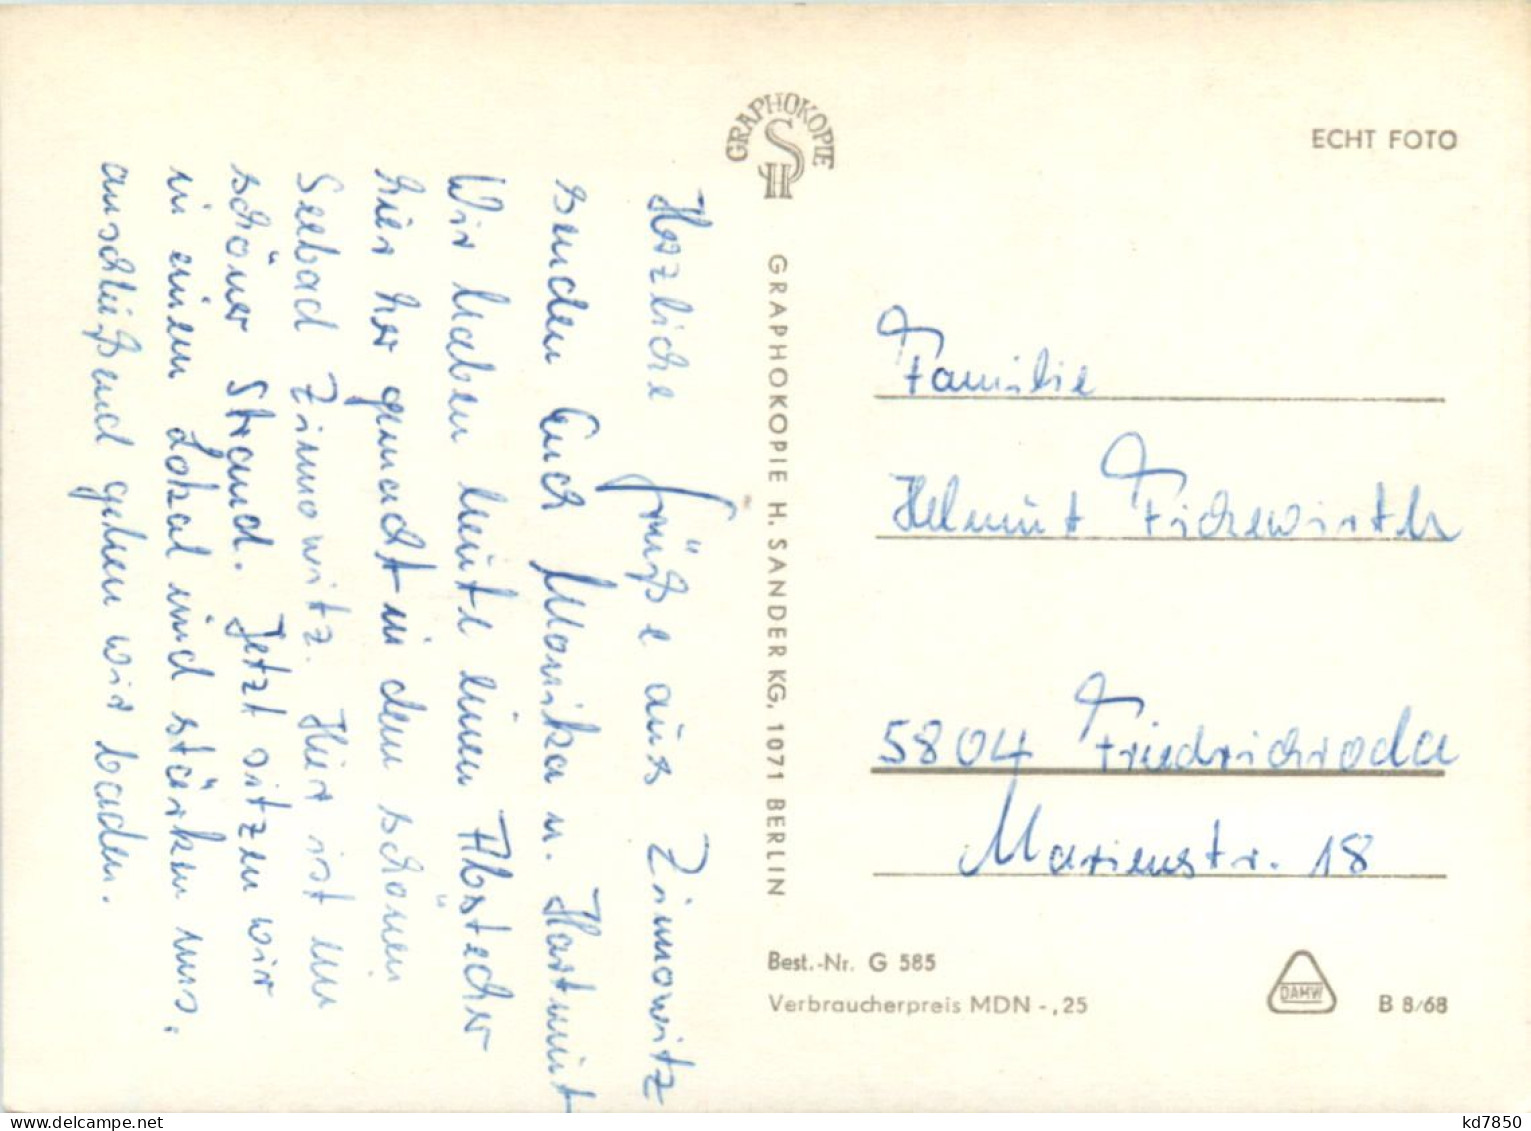 Herzliche Grüße aus Zinnowitz
senden Euch Monika u. Hartmut
Wir haben heute einen Abstecher
hier her gemacht in dem schönen
Seebad Zinnowitz. Hier ist ein
schöner Strand. Jetzt sitzen wir
in einem Lokal und stärken uns,
anschließend gehen wir baden.
GRAPHOKOPIE
HS
GRAPHOKOPIE H. SANDER KG, 1071 BERLIN
ECHT FOTO
Familie
Helmut
5804 Friedrichroda
Marienstr. 18
Best.-Nr. G 585
Verbraucherpreis MDN -,25
DAMW
B 8/68
delcampe.net
kd7850